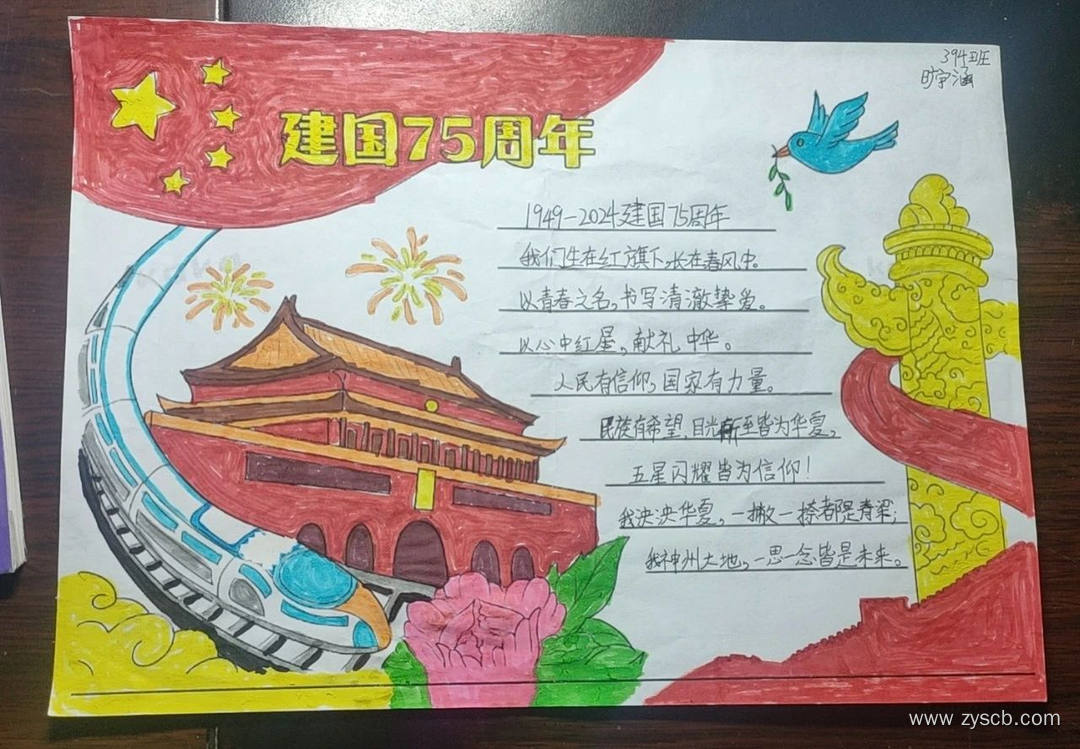 394班
旷宇涵
建国75周年
1949-2024建国75周年
我们生在红旗下,长在春风中。
以青春之名,书写清澈挚爱。
以心中红星,献礼中华。
人民有信仰,国家有力量。
民族有希望,目光所至皆为华夏,
五星闪耀皆为信仰!
我泱泱华夏,一撇一捺都是脊梁;
我神州大地,一思一念皆是未来。
www.zyscb.com